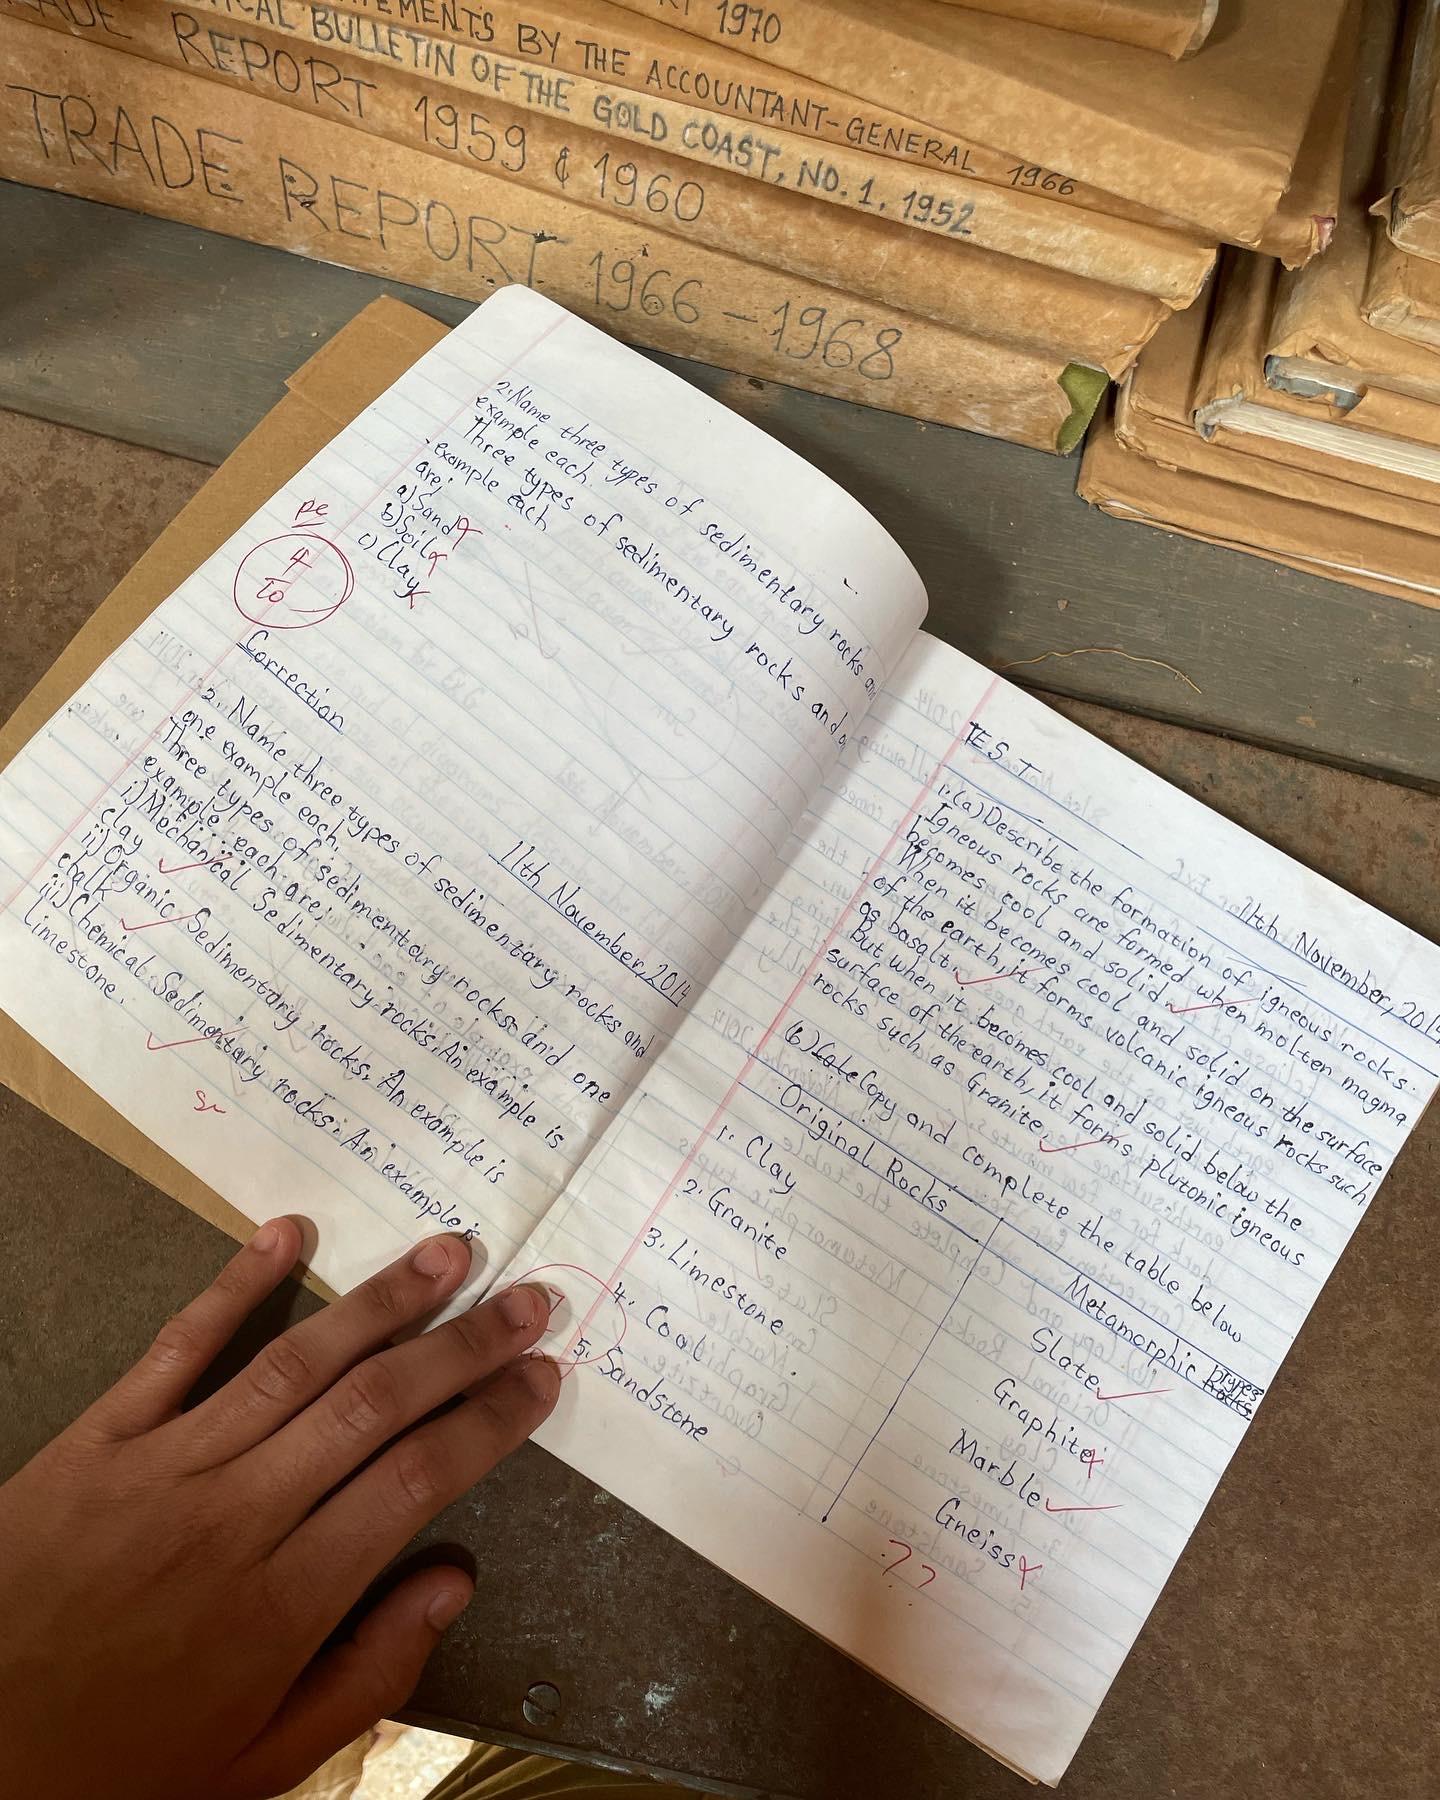 1970
EMENTS BY THE ACCOUNTANT-GENERAL 1966
ICAL BULLETIN OF THE GOLD COAST, NO. 1. 1952
REPORT 1959 & 1960
TRADE REPORT 1966 - 1968
2. Name three types of sedimentary rocks an
example each.
Three types of sedimentary rocks and o
example each
are;
a) Sand
b) Soil
c) Clay
4
10
Correction
11th November, 2014
2. Name three types of sedimentary rocks and
one example each.
Three types of sedimentary rocks and one
example each are;
i) Mechanical Sedimentary rocks. An example is
clay
ii) Organic Sedimentary rocks. An example is
chalk
iii) Chemical Sedimentary rocks. An example is
Limestone.
TEST
11th November, 2014
1. (a) Describe the formation of igneous rocks.
Igneous rocks are formed when molten magma
becomes cool and solid.
When it becomes cool and solid on the surface
of the earth, it forms volcanic igneous rocks such
as basalt.
but when it becomes cool and solid below the
surface of the earth, it forms plutonic igneous
rocks such as Granite.
(b) Copy and complete the table below
Original Rocks
Metamorphic types
1. Clay
Slate
2. Granite
Graphite
3. Limestone
Marble
4. Coal
Gneiss
5. Sandstone
??
7